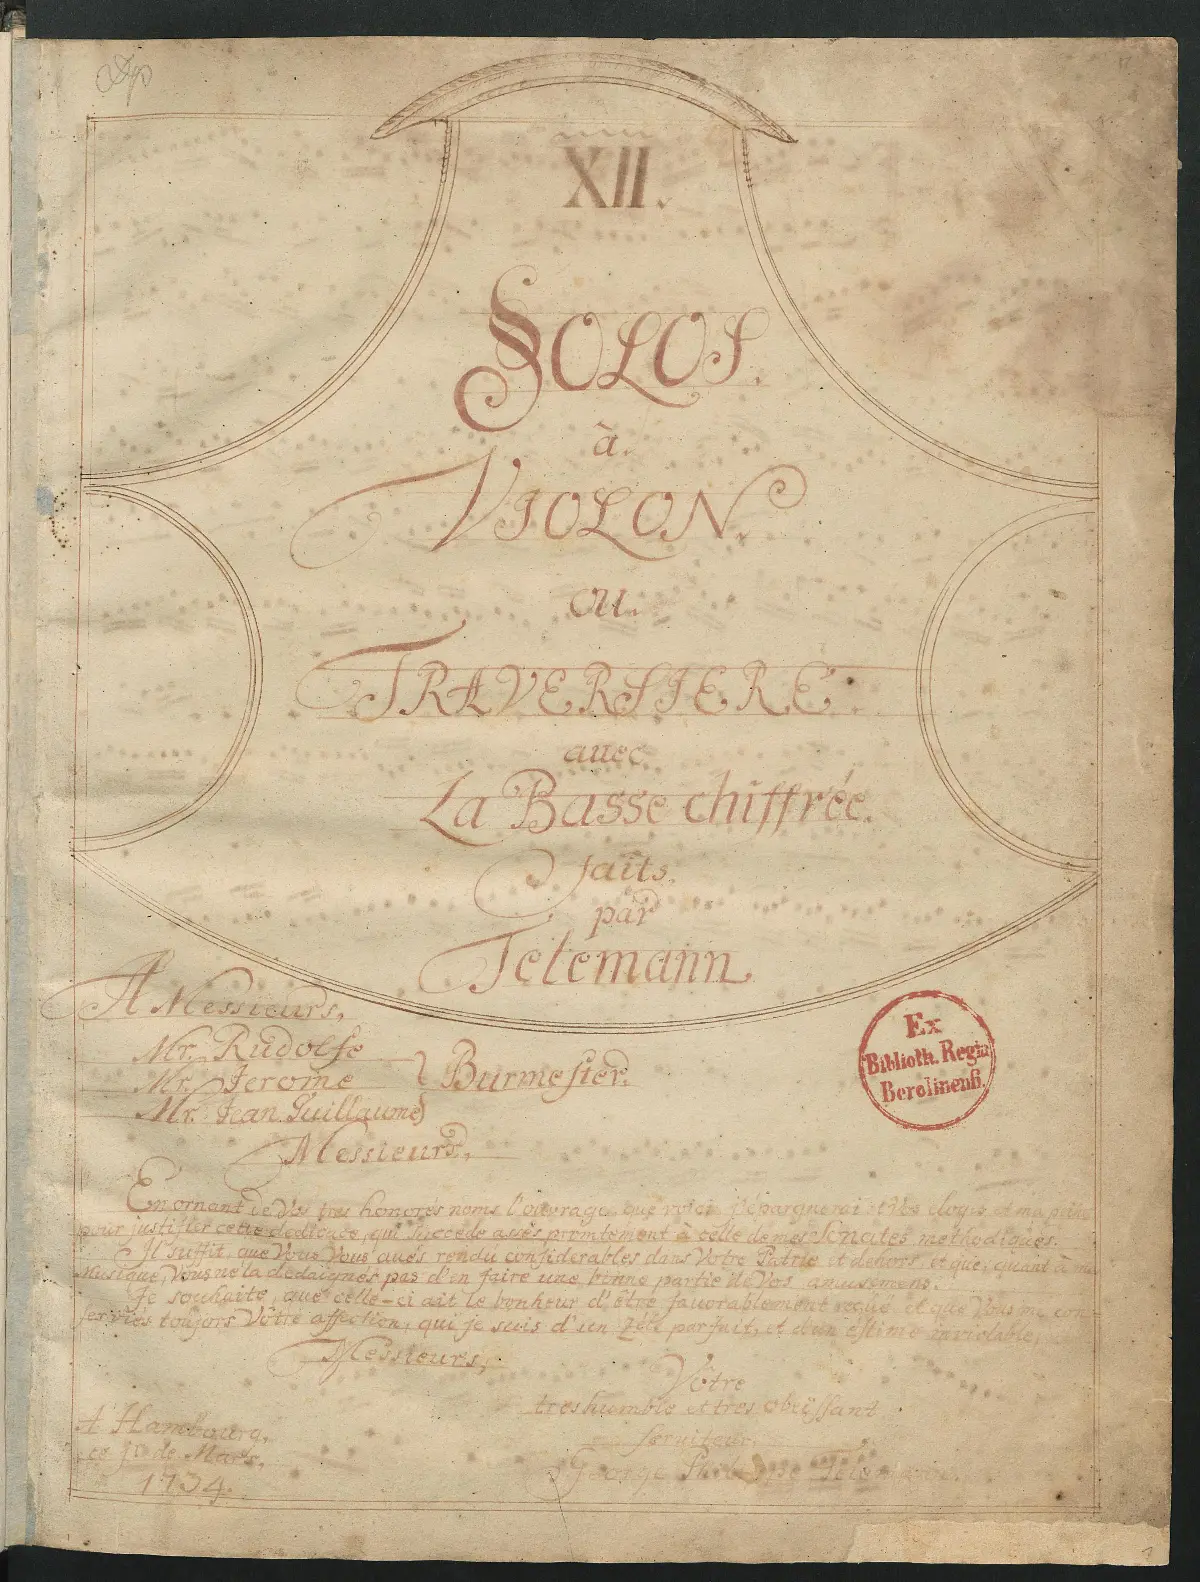 XII.
SOLOS.
à.
VIOLON.
ou.
TRAVERSIERE.
avec
La Basse chiffrée.
faits.
par
Telemann
A Messieurs,
Mr. Rudolfe
Mr. Jerome
Burmester.
Mr. Jean Guillaume
Messieurs,
Ex
Biblioth. Regia
Berolinenſi.
En ornant de Vos tres honorés noms l'ouvrage que voici j'épargnerai et Vos eloges et ma peine
pour justifier cette dedicace, qui succede assés promtement à celle de mes Sonates methodiques.
Il suffit, que Vous Vous avés rendu considerables dans Vôtre Patrie et dehors, et que, quant à ma
Musique, Vous ne la dedaignés pas d'en faire une bonne partie de Vos amusemens.
Je souhaite, que celle-ci ait le bonheur d'être favorablement reçuë et que Vous me con-
serviés toujors Vôtre affection, qui je suis d'un zéle parfait, et d'un estime inviolable,
Messieurs,
Vôtre
tres humble et tres obëissant
serviteur.
George Philippe Telemann.
A Hambourg,
ce de Mars,
1734.